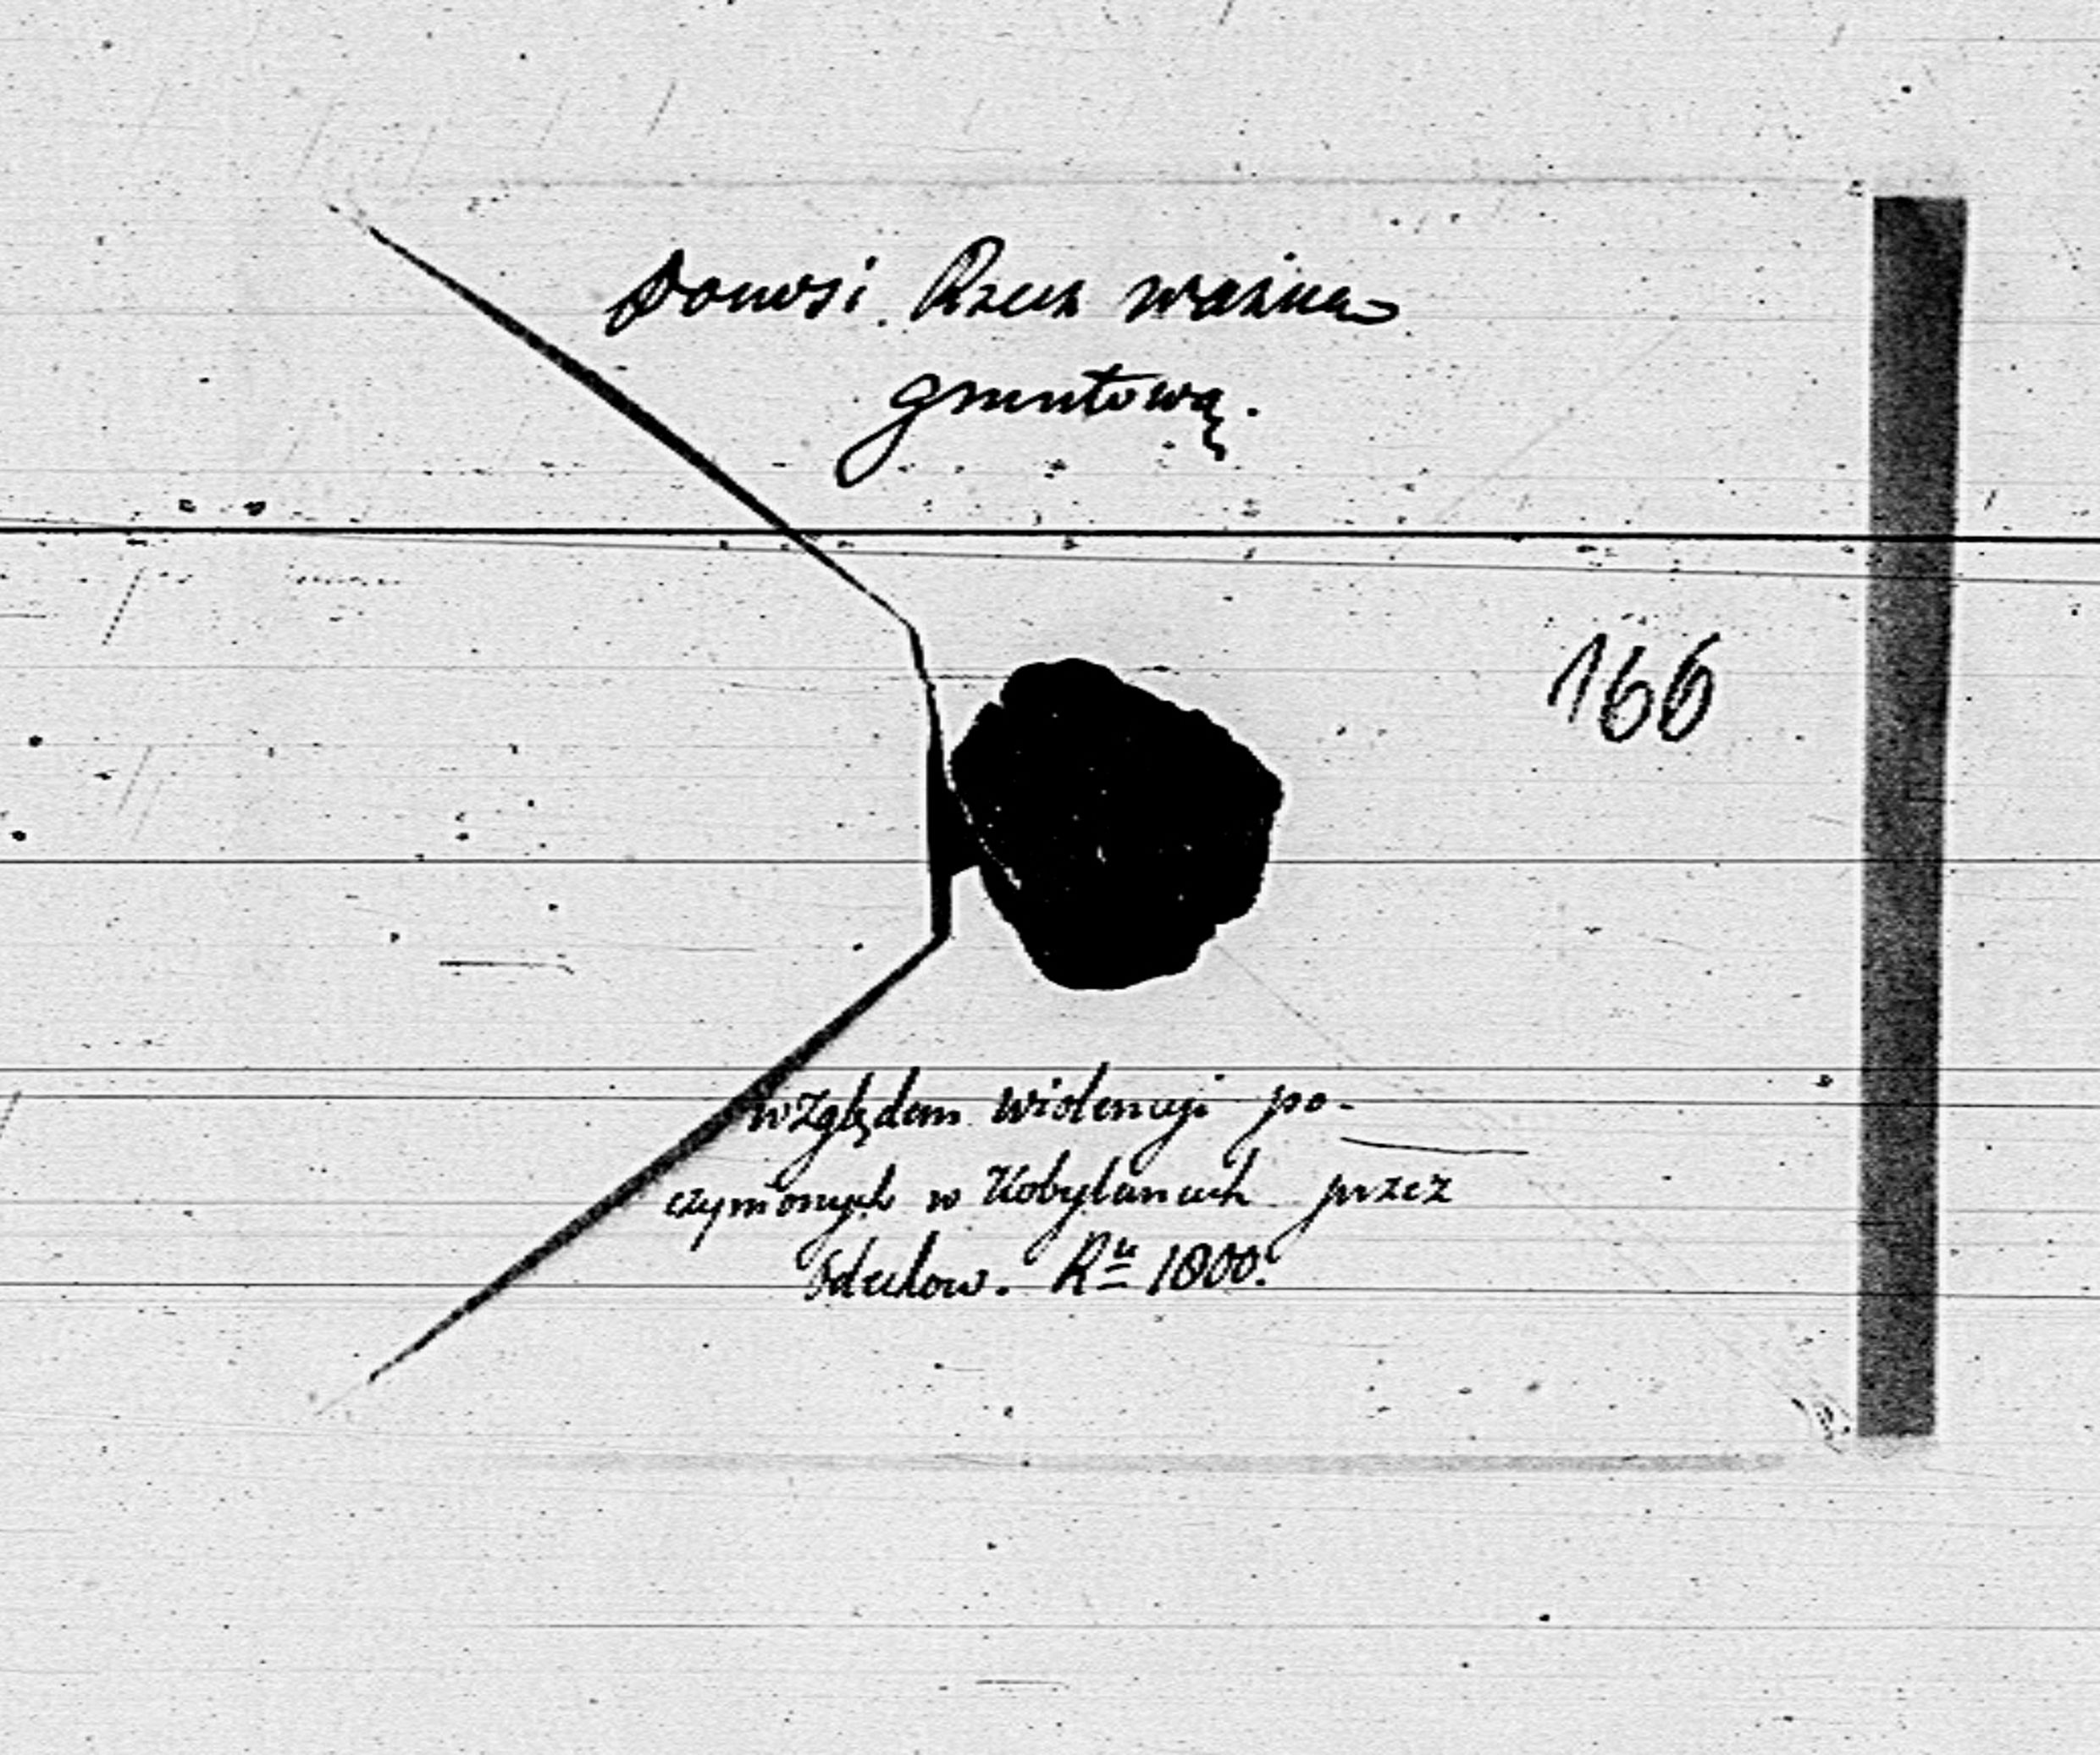 Donosi Rzecz ważną
gruntową.
166
względem wiolencyi po-
czynionych w Kobylanach przez
R<sup>u</sup> 1800.